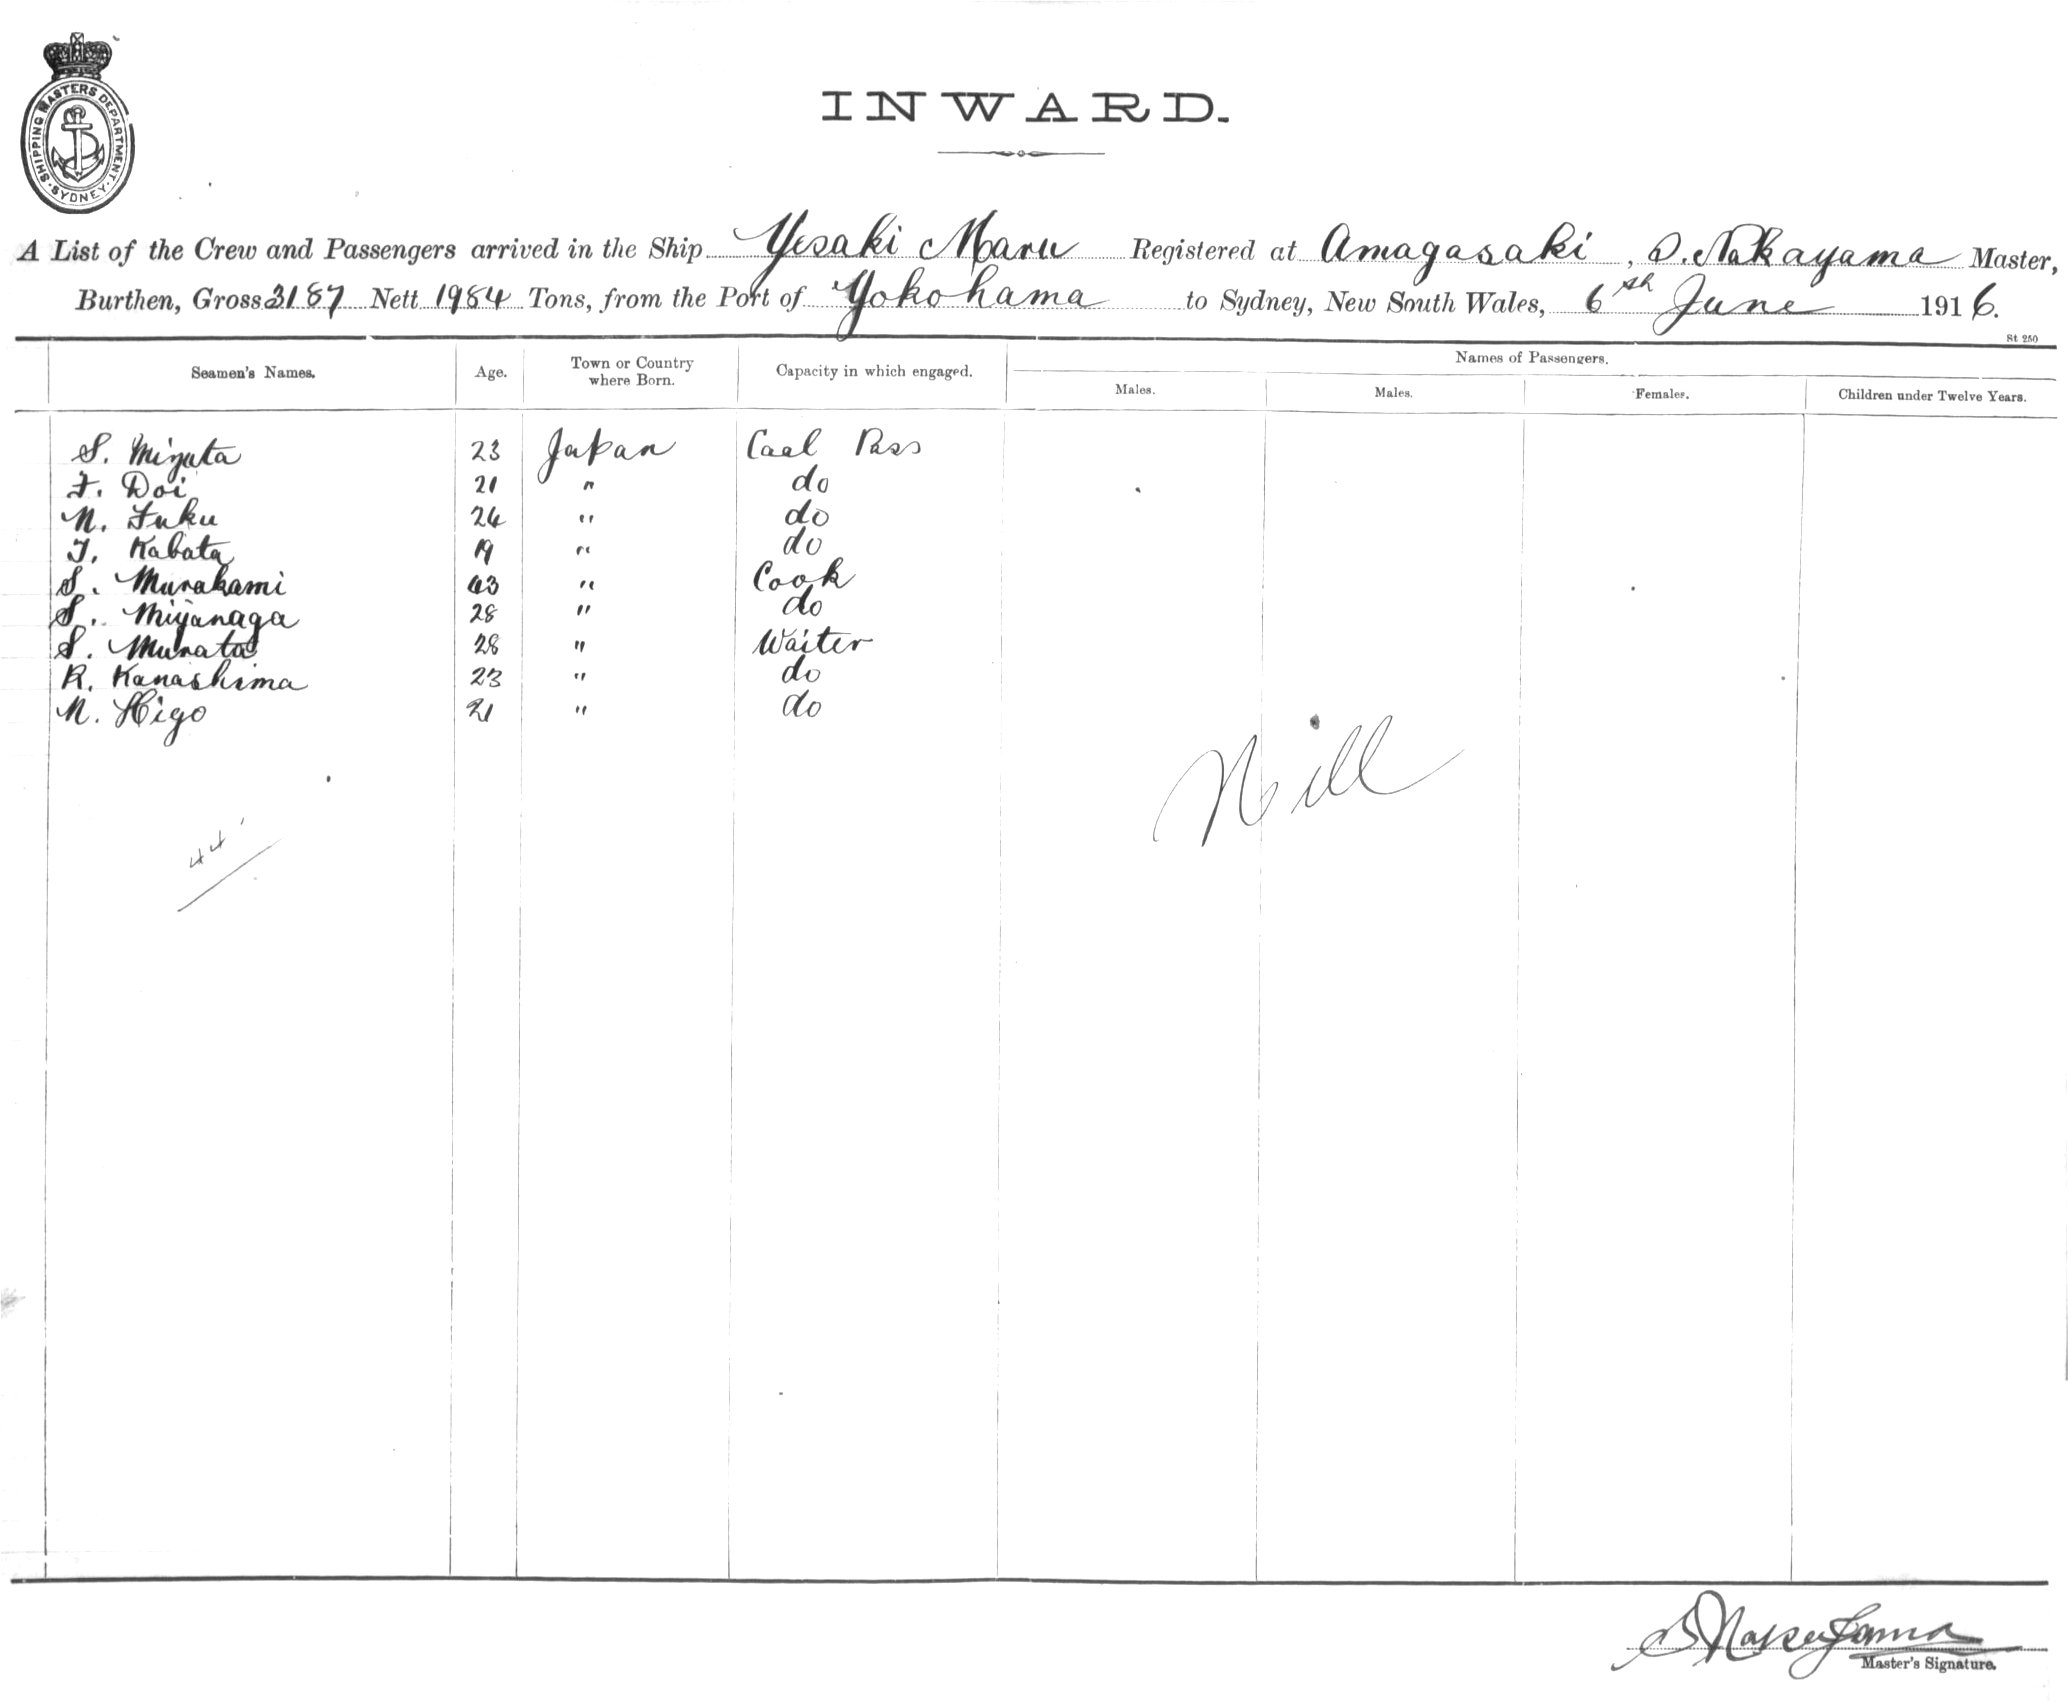 SHIPPING MASTERS DEPARTMENT. SYDNEY.
INWARD.
A List of the Crew and Passengers arrived in the Ship Yesaki Maru Registered at Amagasaki, S. Nakayama Master,
Burthen, Gross 3187 Nett 1984 Tons, from the Port of Yokohama to Sydney, New South Wales, 6th June 1916.
St 250
Seamen's Names. Age. Town or Country where Born. Capacity in which engaged. Names of Passengers.
Males. Males. Females. Children under Twelve Years.
S. Mizuta 23 Japan Coal Pass
F. Doi 21 " do
N. Fuku 24 " do
T. Kabata 19 " do
S. Murakami 43 " Cook
S. Miyanaga 28 " do
S. Murata 28 " Waiter
R. Kanashima 23 " do
N. Higo 21 " do
Nill
44
S Nakayama
Master's Signature.